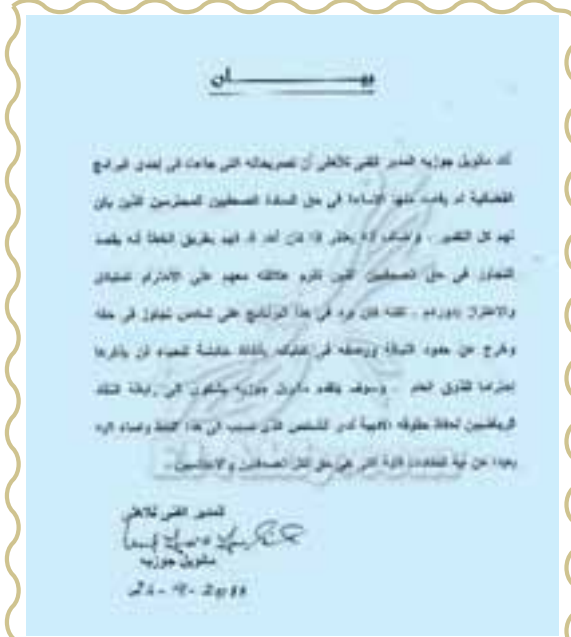 بيـــــــــان
أكد مانويل جوزيه المدير الفنى للأهلى أن تصريحاته التى جاءت فى إحدى البرامج
الفضائية لم يقصد منها الإساءة فى حق السادة الصحفيين المحترمين الذين يكن
لهم كل التقدير . وأضاف أنه يعتذر إذا كان أحد قد فهم بطريق الخطأ أنه يقصد
التجاوز فى حق الصحفيين الذين تقوم علاقته معهم على الاحترام المتبادل
والاعتزاز بدورهم . لكنه كان يرد فى هذا البرنامج على شخص تجاوز فى حقه
وخرج عن حدود اللياقة ووصفه فى كتاباته بألفاظ خادشة للحياء لن يذكرها
احتراما للذوق العام . وسوف يتقدم مانويل جوزيه بشكوى إلى رابطة النقاد
الرياضيين لحفظ حقوقه الأدبية لدى الشخص الذى تسبب فى هذا اللغط وأساء إليه
بعيدا عن نية التى هى حق لكل الصحفيين والإعلاميين .
المدير الفنى للأهلى
مانويل جوزيه